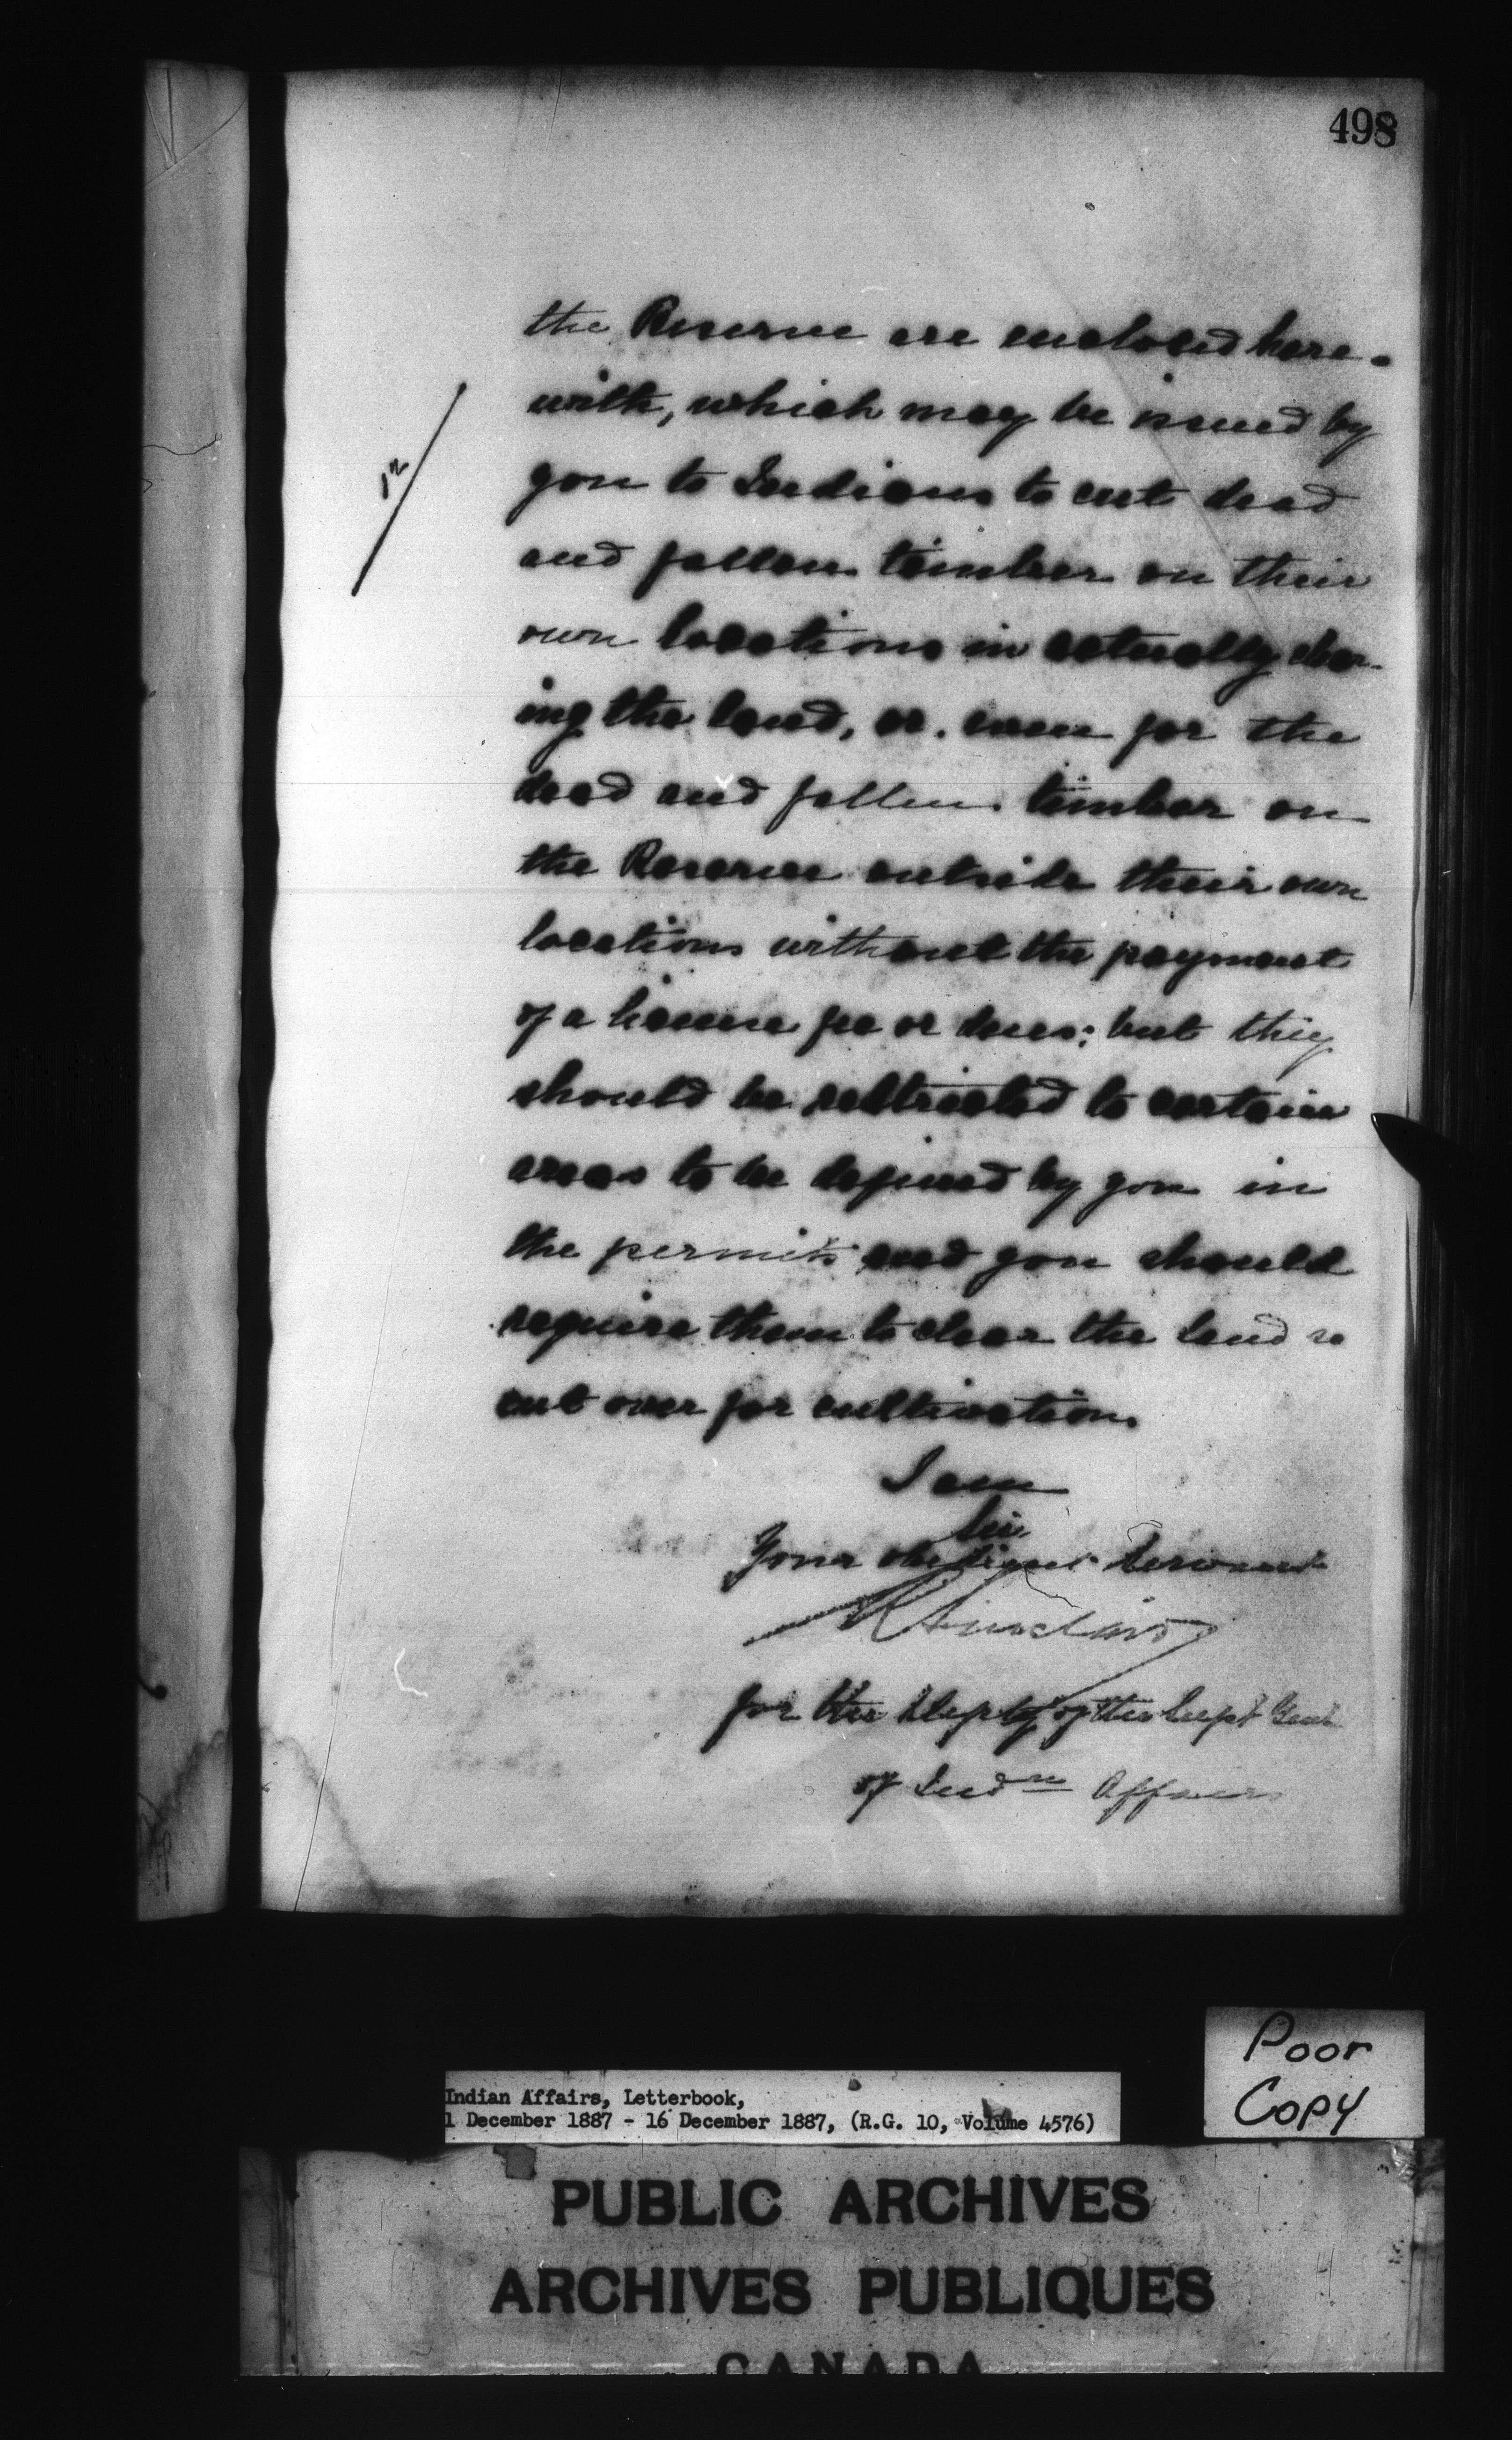 498
the Reserve are enclosed here-
with, which may be issued by
you to Indians to cut dead
and fallen timber on their
own locations in actually clear-
ing the land, or even for the
dead and fallen timber on
the Reserve outside their own
locations without the payment
of a license fee or dues; but they
should be restricted to certain
areas to be defined by you in
the permits and you should
require them to clear the land so
cut over for cultivation.
I am
Sir
Your obedient Servant
R Sinclair
for the Depty of the Supt Genl
of Indn Affairs
12
Poor
Copy
Indian Affairs, Letterbook,
1 December 1887 - 16 December 1887, (R.G. 10, Volume 4576)
PUBLIC ARCHIVES
ARCHIVES PUBLIQUES
CANADA